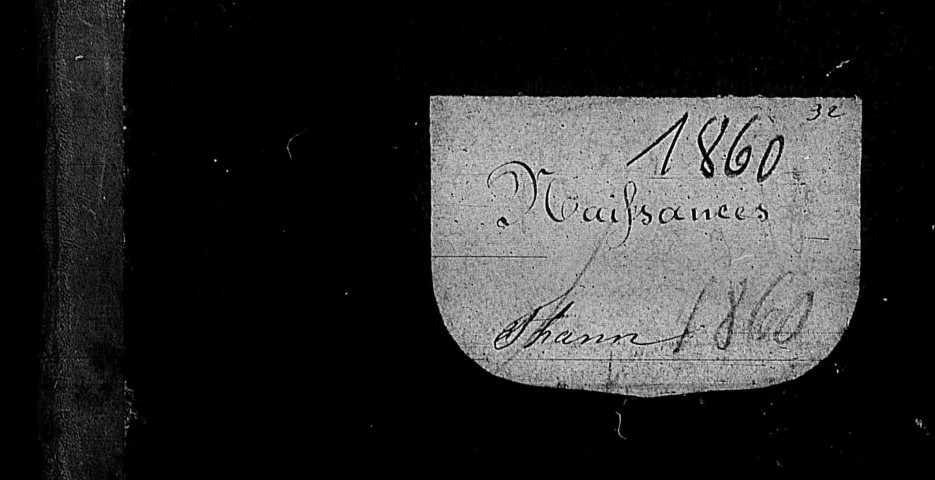 32
1860
Naiſsances
Thann 1860